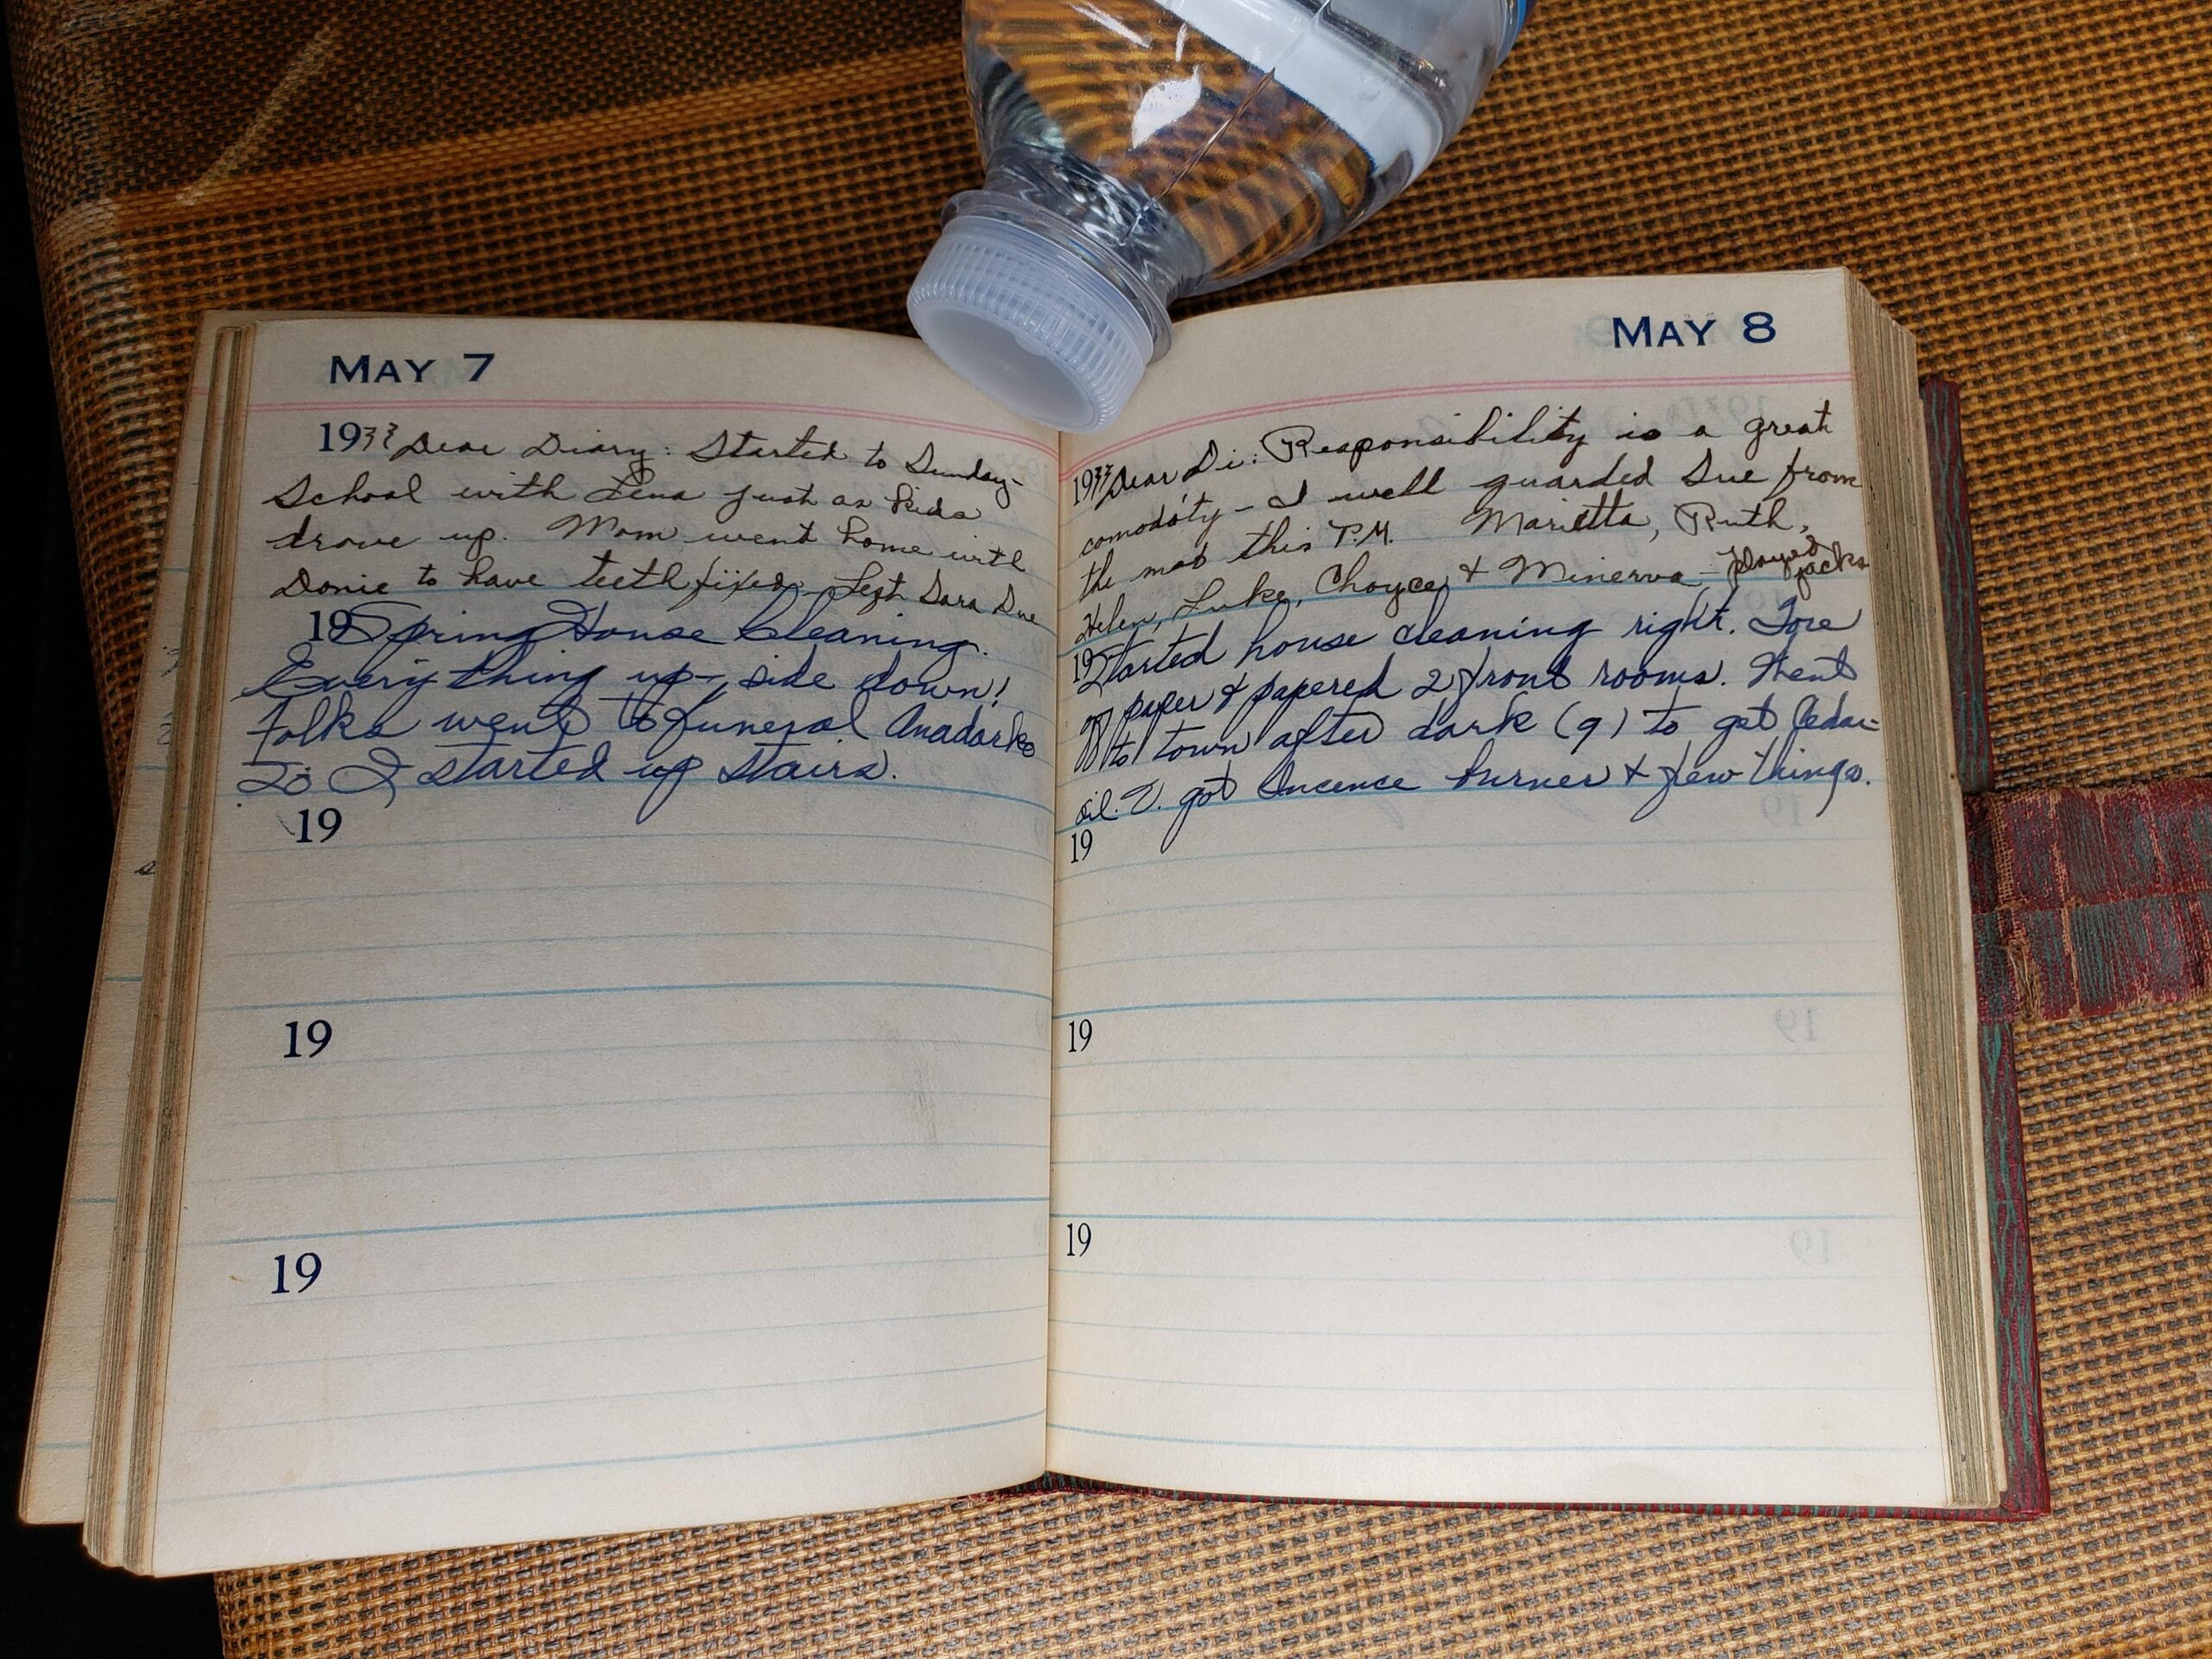 MAY 7
1933 Dear Diary: Started to Sunday-
School with Lena just as kids
drove up. Mom went home with
Donie to have teeth fixed. Left Sara Sue
19 Spring House Cleaning.
Everything up-side down!
Folks went to funeral Anadarko
So I started up stairs.
19
19
19
MAY 8
1933 Dear Di: Responsibility is a great
comodoty - I well guarded Sue from
the mob this P.M. Marietta, Ruth,
Helen, Luke, Choyce & Minerva - played jacks
19 Started house cleaning right. Tore
off paper & papered 2 front rooms. Went
to town after dark (9) to get Cedar
oil. V. got Incence burner & few things.
19
19
19